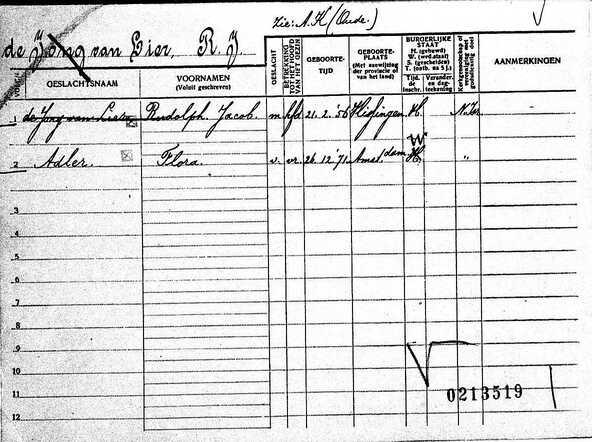 Zie: A.K (Oude.)
de Jong van Lier, R. J.
VOLGNR.
GESLACHTSNAAM
VOORNAMEN
(Voluit geschreven)
GESLACHT
BETREKKING TOT HET HOOFD VAN HET GEZIN
GEBOORTE-
TIJD
GEBOORTE-
PLAATS
(Met aanwijzing der provincie of van het land)
BURGERLIJKE
STAAT
H. (gehuwd)
W. (wed.staat)
S. (gescheiden)
T. (ontb. na 5 j.)
Tijd. de inschr.
Verander. en dag-teekening
Kerkgenootschap of vereeniging met godsdienstig doel
AANMERKINGEN
1 de Jong van Lier Rudolph Jacob. m. hfd 21. 2. '56 H. N. Isr
W
2 Adler. Flora. v. vr. 26. 12 '71 Amst.dam H. "
3
4
5
6
7
8
9
10
11
12
0213519